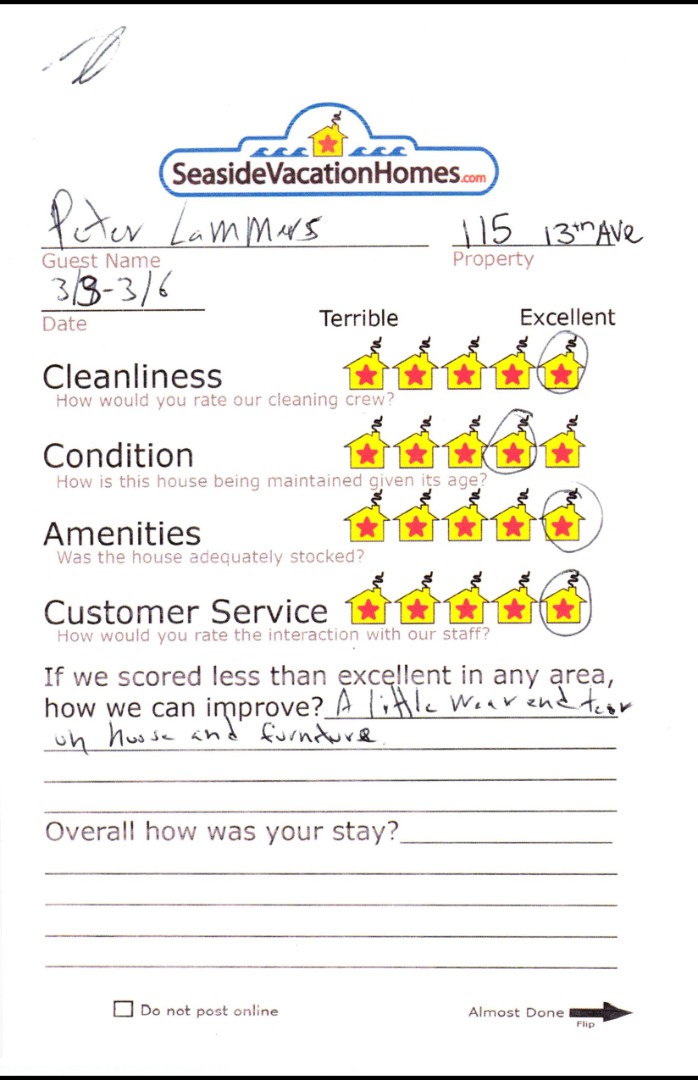 SeasideVacationHomes.com
Peter Lammers 115 13th Ave
Guest Name Property
3/3-3/6
Date Terrible Excellent
Cleanliness
How would you rate our cleaning crew?
Condition
How is this house being maintained given its age?
Amenities
Was the house adequately stocked?
Customer Service
How would you rate the interaction with our staff?
If we scored less than excellent in any area,
how we can improve? A little wear and tear
on house and furniture
Overall how was your stay?
Do not post online Almost Done
Flip